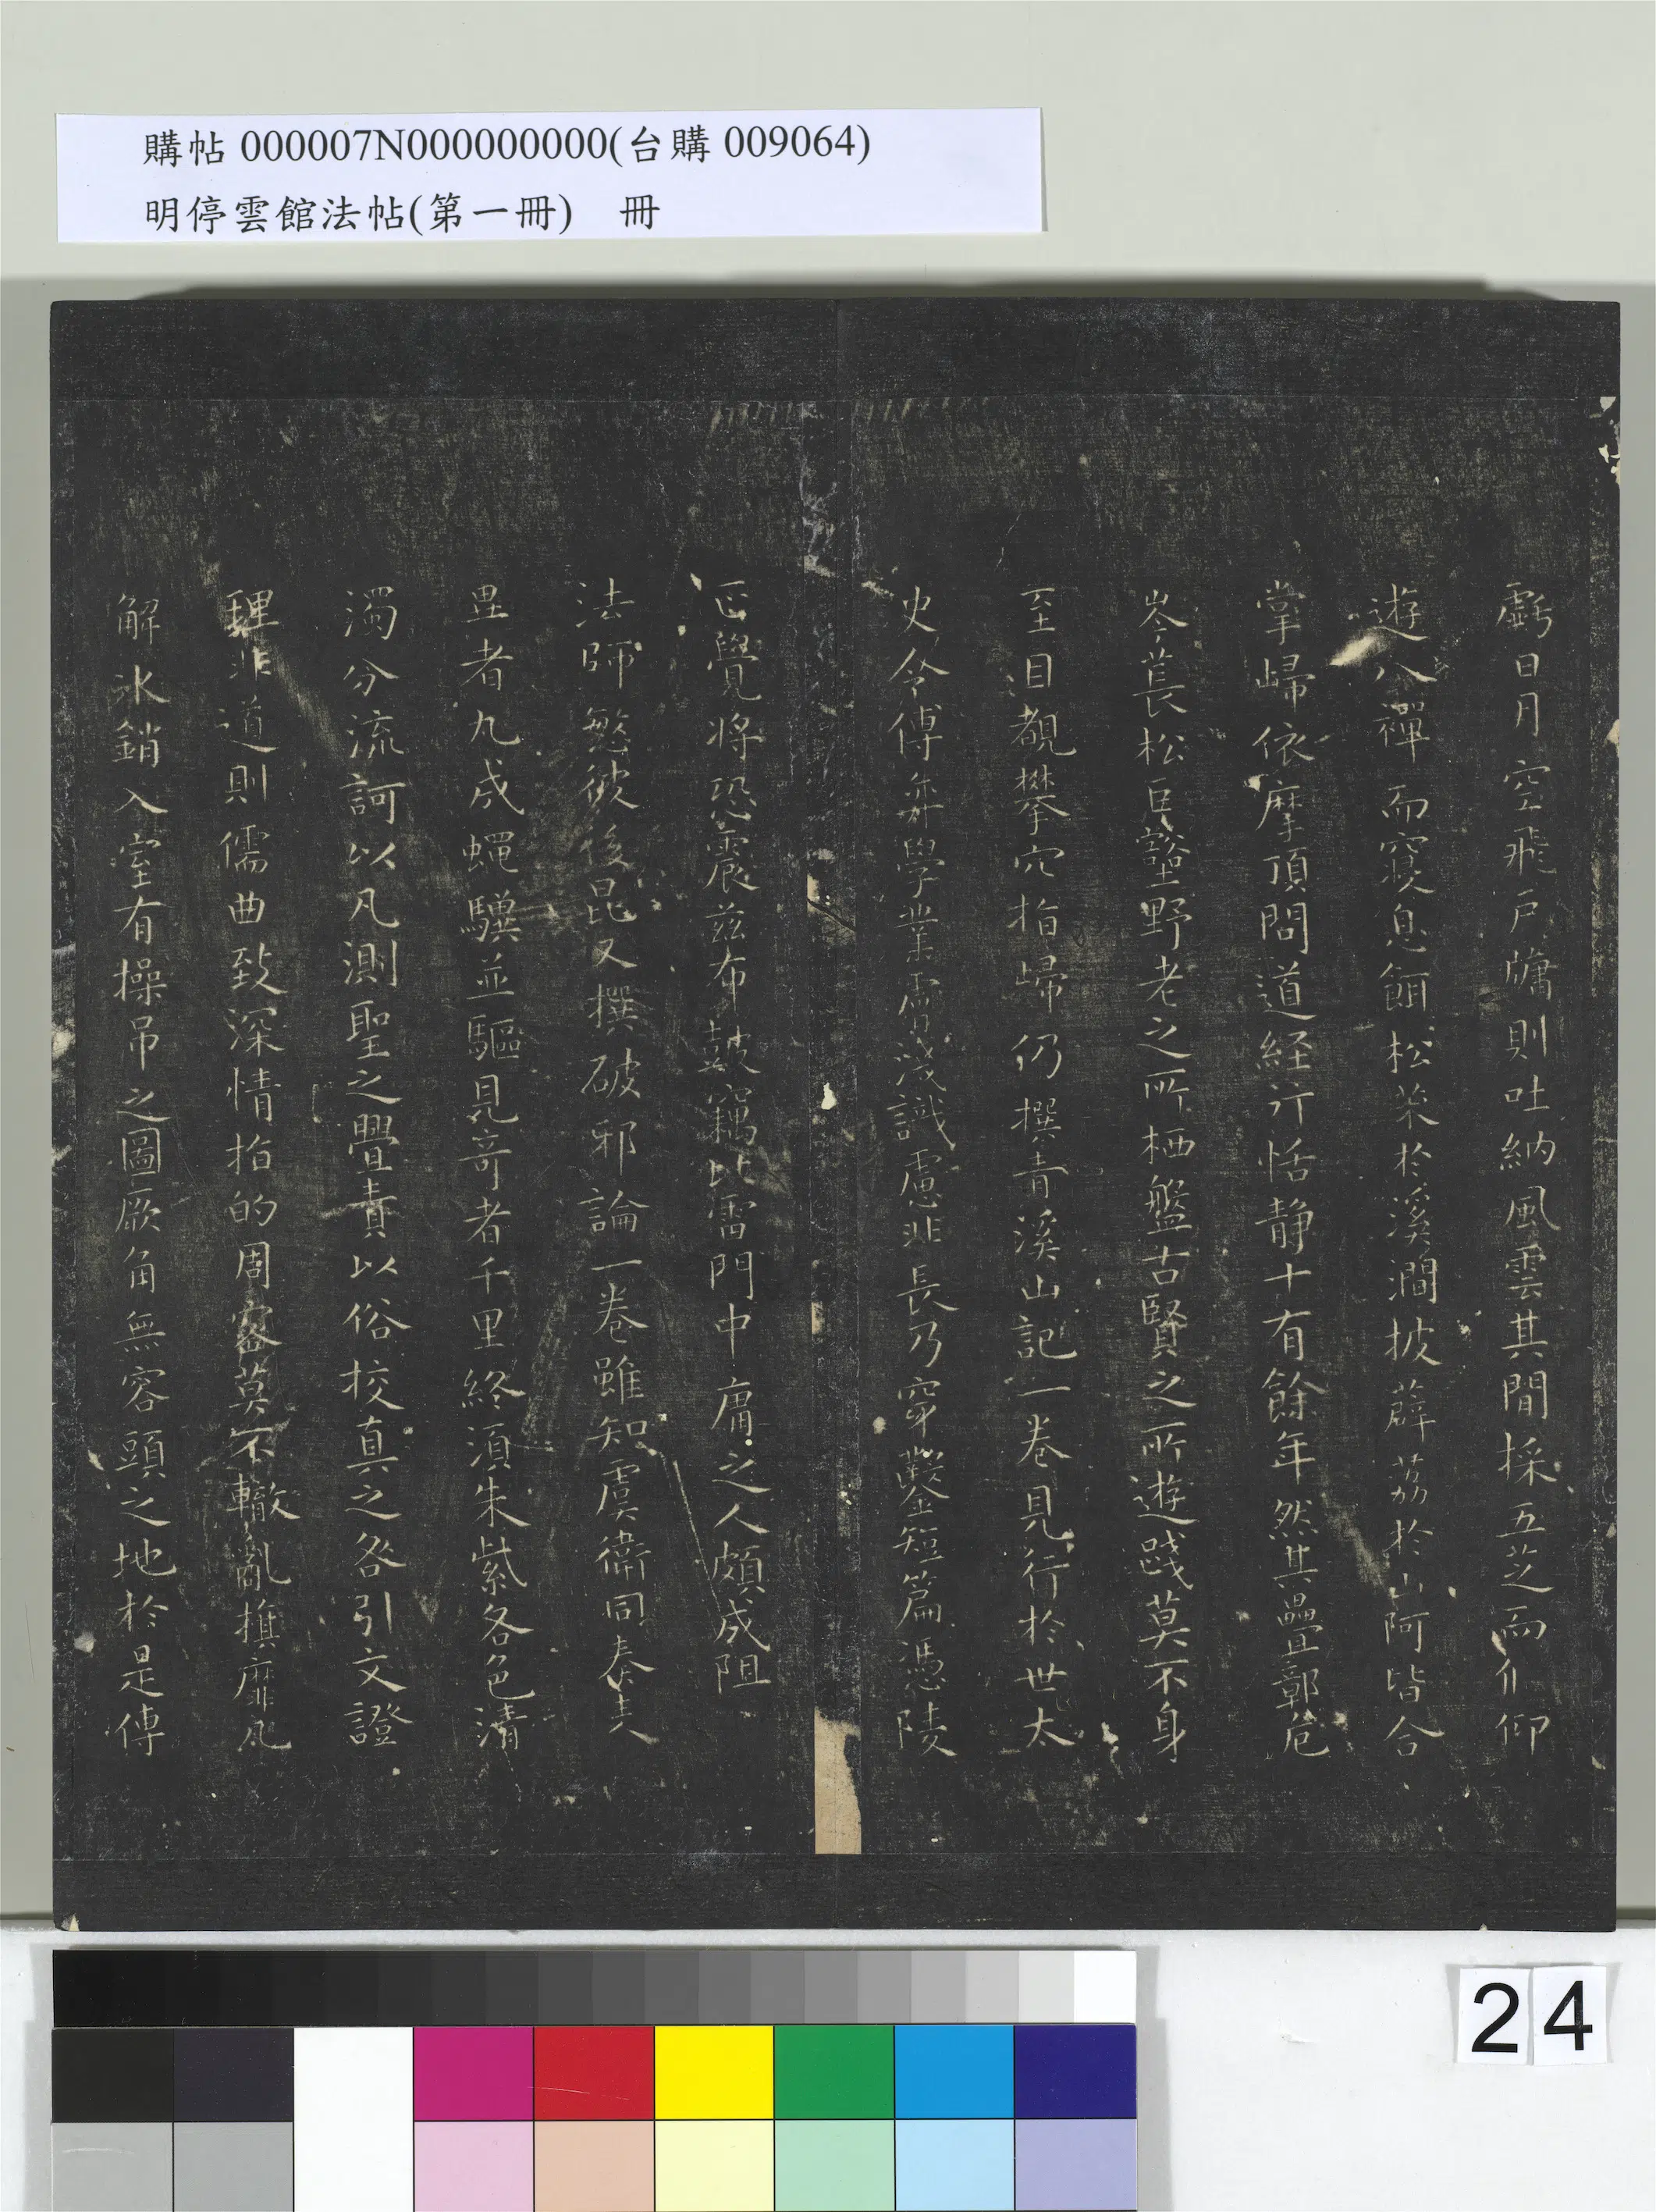 購帖 000007N000000000(台購 009064)
明停雲館法帖(第一冊) 冊
虧日月空飛戶牖則吐納風雲其間採五芝而偃仰
遊八禪而寢息餌松菜於溪澗披薜荔於山阿皆合
掌歸依摩頂問道経行恬靜十有餘年然其疊鄣危
岑萇松巨壑野老之所栖盤古賢之所遊踐莫不身
至目覩攀穴指歸仍撰青溪山記一巻見行於世太
史令傅弈學業膚淺識慮非長乃穿鑿短篇憑陵
正覺將恐震茲布鼓竊比雷門中庸之人頗成阻
法師愍彼後昆又撰破邪論一巻雖知虞衛同奏表
異者九成蠅驥並驅見奇者千里終須朱紫各色清
濁分流訶以凡測聖之舋責以俗校真之咎引文證
理非道則儒曲致深情指的周密莫不轍亂旗靡瓦
解氷銷入室有操吊之圖厥角無容頭之地於是傳
24